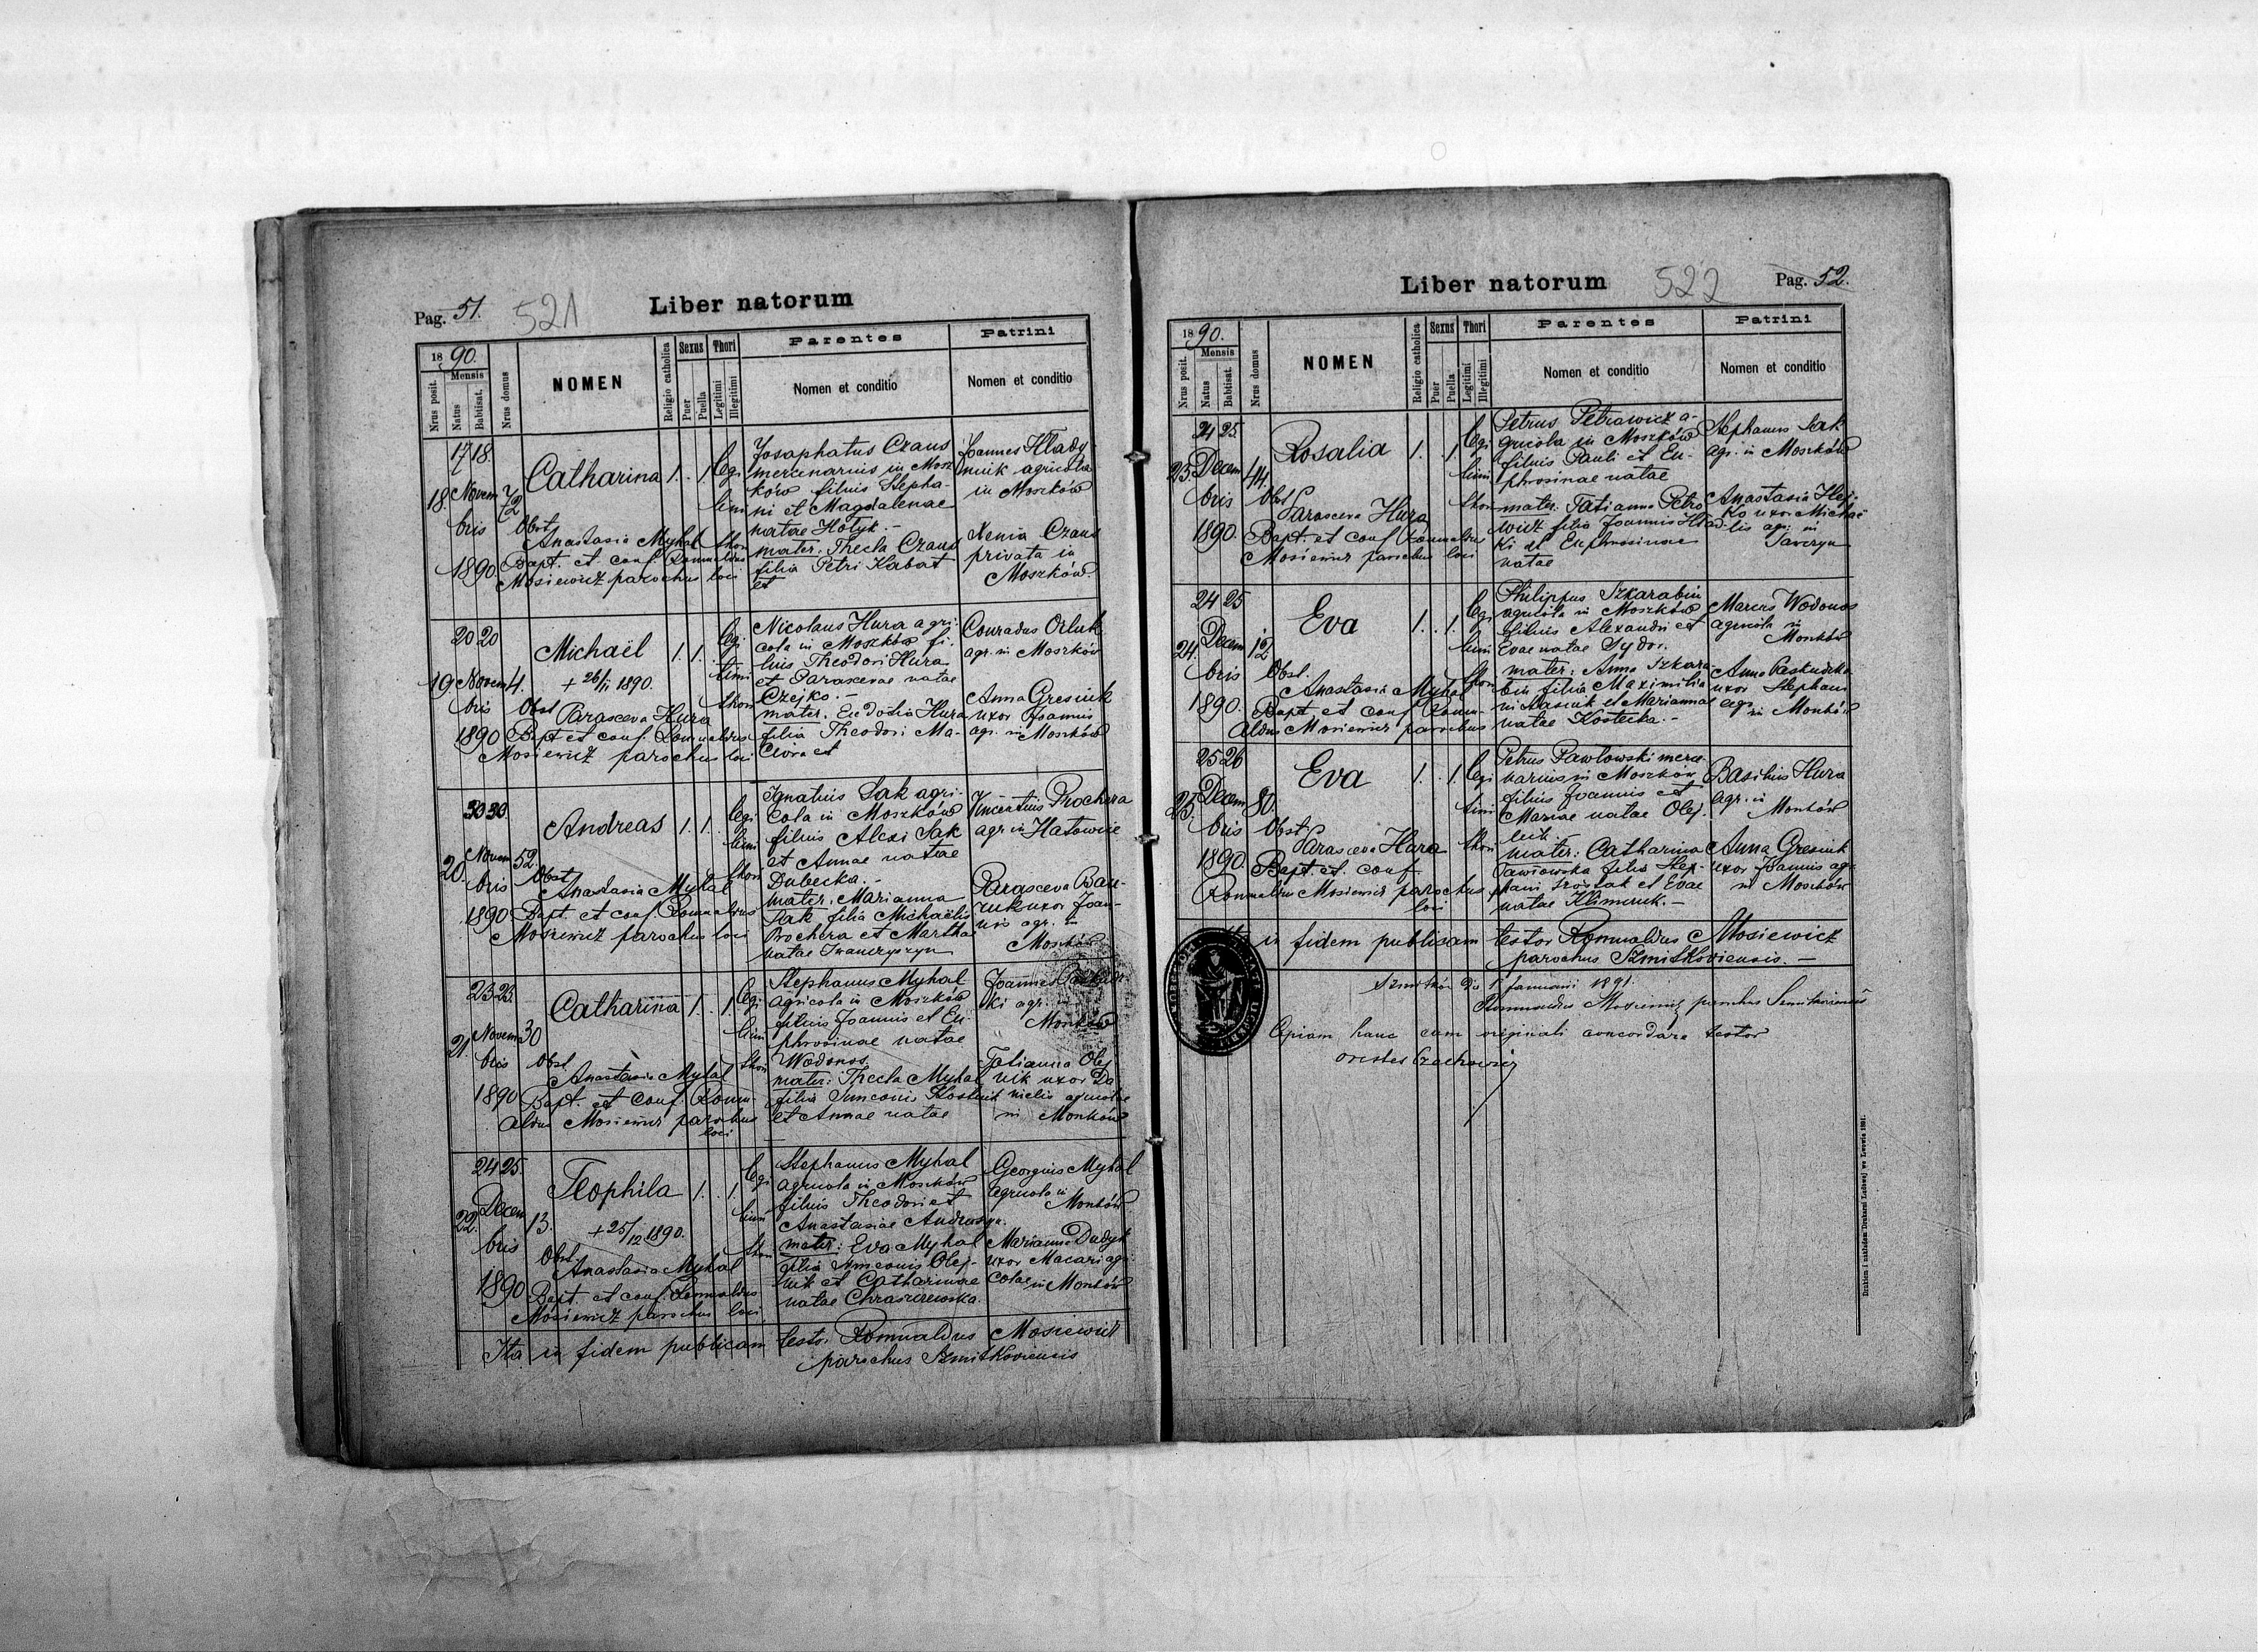 Pag. 51.
521
Liber natorum
1890.
Mensis
Nrus posit.
Natus
Babtisat.
Nrus domus
NOMEN
Religio catholica
Sexus
Puer
Puella
Thori
Legitimi
Illegitimi
Parentes
Nomen et conditio
Patrini
Nomen et conditio
18.
17 18.
Novem
bris
1890
72
Catharina
1. . 1.
legi
timi
thori
Obst.
Anastasia Myhal
Bapt. et conf. Romualdus
Mosiewicz parochus loci
Josaphatus Czaus
mercenarius in Mosz
ków filius Stepha-
ni et Magdalenae
natae Hotyk.-
mater: Thecla Czaus
filia Petri Kabat
et
Joannes Hlady
niuk agricola
in Moszków
Xenia Czaus
privata in
Moszków.
19
20 20
Novem
bris
1890
4.
Michaël
+ 26/11 1890.
1. 1.
legi
timi
thori
Obst
Parasceva Hura
Bapt et conf. Romualdus
Mosiewicz parochus loci
Nicolaus Hura agri-
cola in Moszków fi-
lius Theodori Hura
et Parascevae natae
Czejko.-
mater. Eudocia Hura
filia Theodori Ma-
et
Conradus Orluk
agr. in Moszków
Anna Gresiuk
uxor Joannis
agr. in Moszków
20.
30 30.
Novem
bris
1890
52.
Andreas
1. 1.
legi
timi
thori
Obst
Anastasia Myhal
Bapt. et conf. Romualdus
Mosiewicz parochus loci
Ignatius Sak agri-
cola in Moszków
filius Alexi Sak
et Annae natae
Dubecka.-
mater: Marianna
Sak filia Michaëlis
Prochera et Martha
natae Iwanczyszyn
Vincentius Prochera
agr in Hatowice
Parasceva
uxor Joan-
nis agr. in
Moszków
21.
25 25.
Novem
bris
1890
30
Catharina
1. . 1.
legi
timi
thori
Obst.
Anastasia Myhal
Bapt. et conf Romu-
aldus Mosiewicz parochus
loci
Stephanus Myhal
agricola in Moszków
filius Joannis et Eu-
phrosinae natae
Wodonos.
mater: Thecla Myhal
filia Simeonis
et Annae natae
Joannes
ki agr. in
Moszków
Tatianna Olej
nik uxor Da
nielis agricolae
in Moszków
22.
24 25.
Decem
bris
1890
13.
Teophila
+ 25/12 1890.
1. . 1.
legi
timi
thori
Obst.
Anastasia Myhal
Bapt. et conf. Romualdus
Mosiewicz parochus loci
Stephanus Myhal
agricola in Moszków
filius Theodori et
Anastasiae
mater: Eva Myhal
filia Simeonis Olej-
nik et Catharinae
natae Chraszczewska.
Georgius Myhal
agricola in
Moszków
Marianna Dudyk
uxor Macari agri
colae in Moszków
Ita in fidem publicam testor Romualdus Mosiewicz
parochus Szmitkoviensis
Liber natorum
522
Pag. 52.
1890.
Mensis
Nrus posit.
Natus
Babtisat.
Nrus domus
NOMEN
Religio catholica
Sexus
Puer
Puella
Thori
Legitimi
Illegitimi
Parentes
Nomen et conditio
Patrini
Nomen et conditio
23.
24 25.
Decem
bris
1890.
44.
Rosalia
1. . 1.
legi
timi
thori
Obst
Parasceva Hura
Bapt et conf Romualdus
Mosiewicz parochus loci
Petrus Petrowicz a-
gricola in Moszków
filius Pauli et Eu-
phrosinae natae
mater: Tatianna Petro
wicz filia Joannis Hlad-
ki et Euphrosinae
natae
Stephanus Sak
agr. in Moszków
Anastasia Hej-
ko uxor Michaë
lis agr. in
24.
24 25
Decem
bris
1890.
12
Eva
1. . 1.
legi
timi
thori
Obst.
Anastasia Myhal
Bapt et conf Romu-
aldus Mosiewicz parochus
Philippus Szkarabin
agricola in Moszków
filius Alexandri et
Evae natae Sydor.
mater: Anna Szkara
bin filia Maximilia
ni et Mariannae
natae Kostecka.-
Marcus Wodonos
agricola in
Moszków
Anna
uxor Stephani
agr. in Moszków
25.
25 26
Decem
bris
1890.
80.
Eva
1. . 1.
legi
timi
thori
Obst
Parasceva Hura
Bapt. et. conf
Romualdus Mosiewicz parochus
loci
Petrus Pawlowski merce
narius in Moszków
filius Joannis et
Mariae natae Olej-
mater: Catharina
Pawlowska filia Step-
hani et Evae
natae Klimczuk.-
Basilius Hura
agr. in
Moszków
Anna Gresiuk
uxor Joannis agr.
in Moszków
in fidem publicam testor Romualdus Mosiewicz
parochus Szmitkoviensis.-
die 1 Januarii 1891.
Romualdus Mosiewicz parochus Szmitkoviensis
Copiam hanc cum originali concordare testor
Orestes Czechowicz
Drukiem i nakładem Drukarni Ludowej we Lwowie 1881.